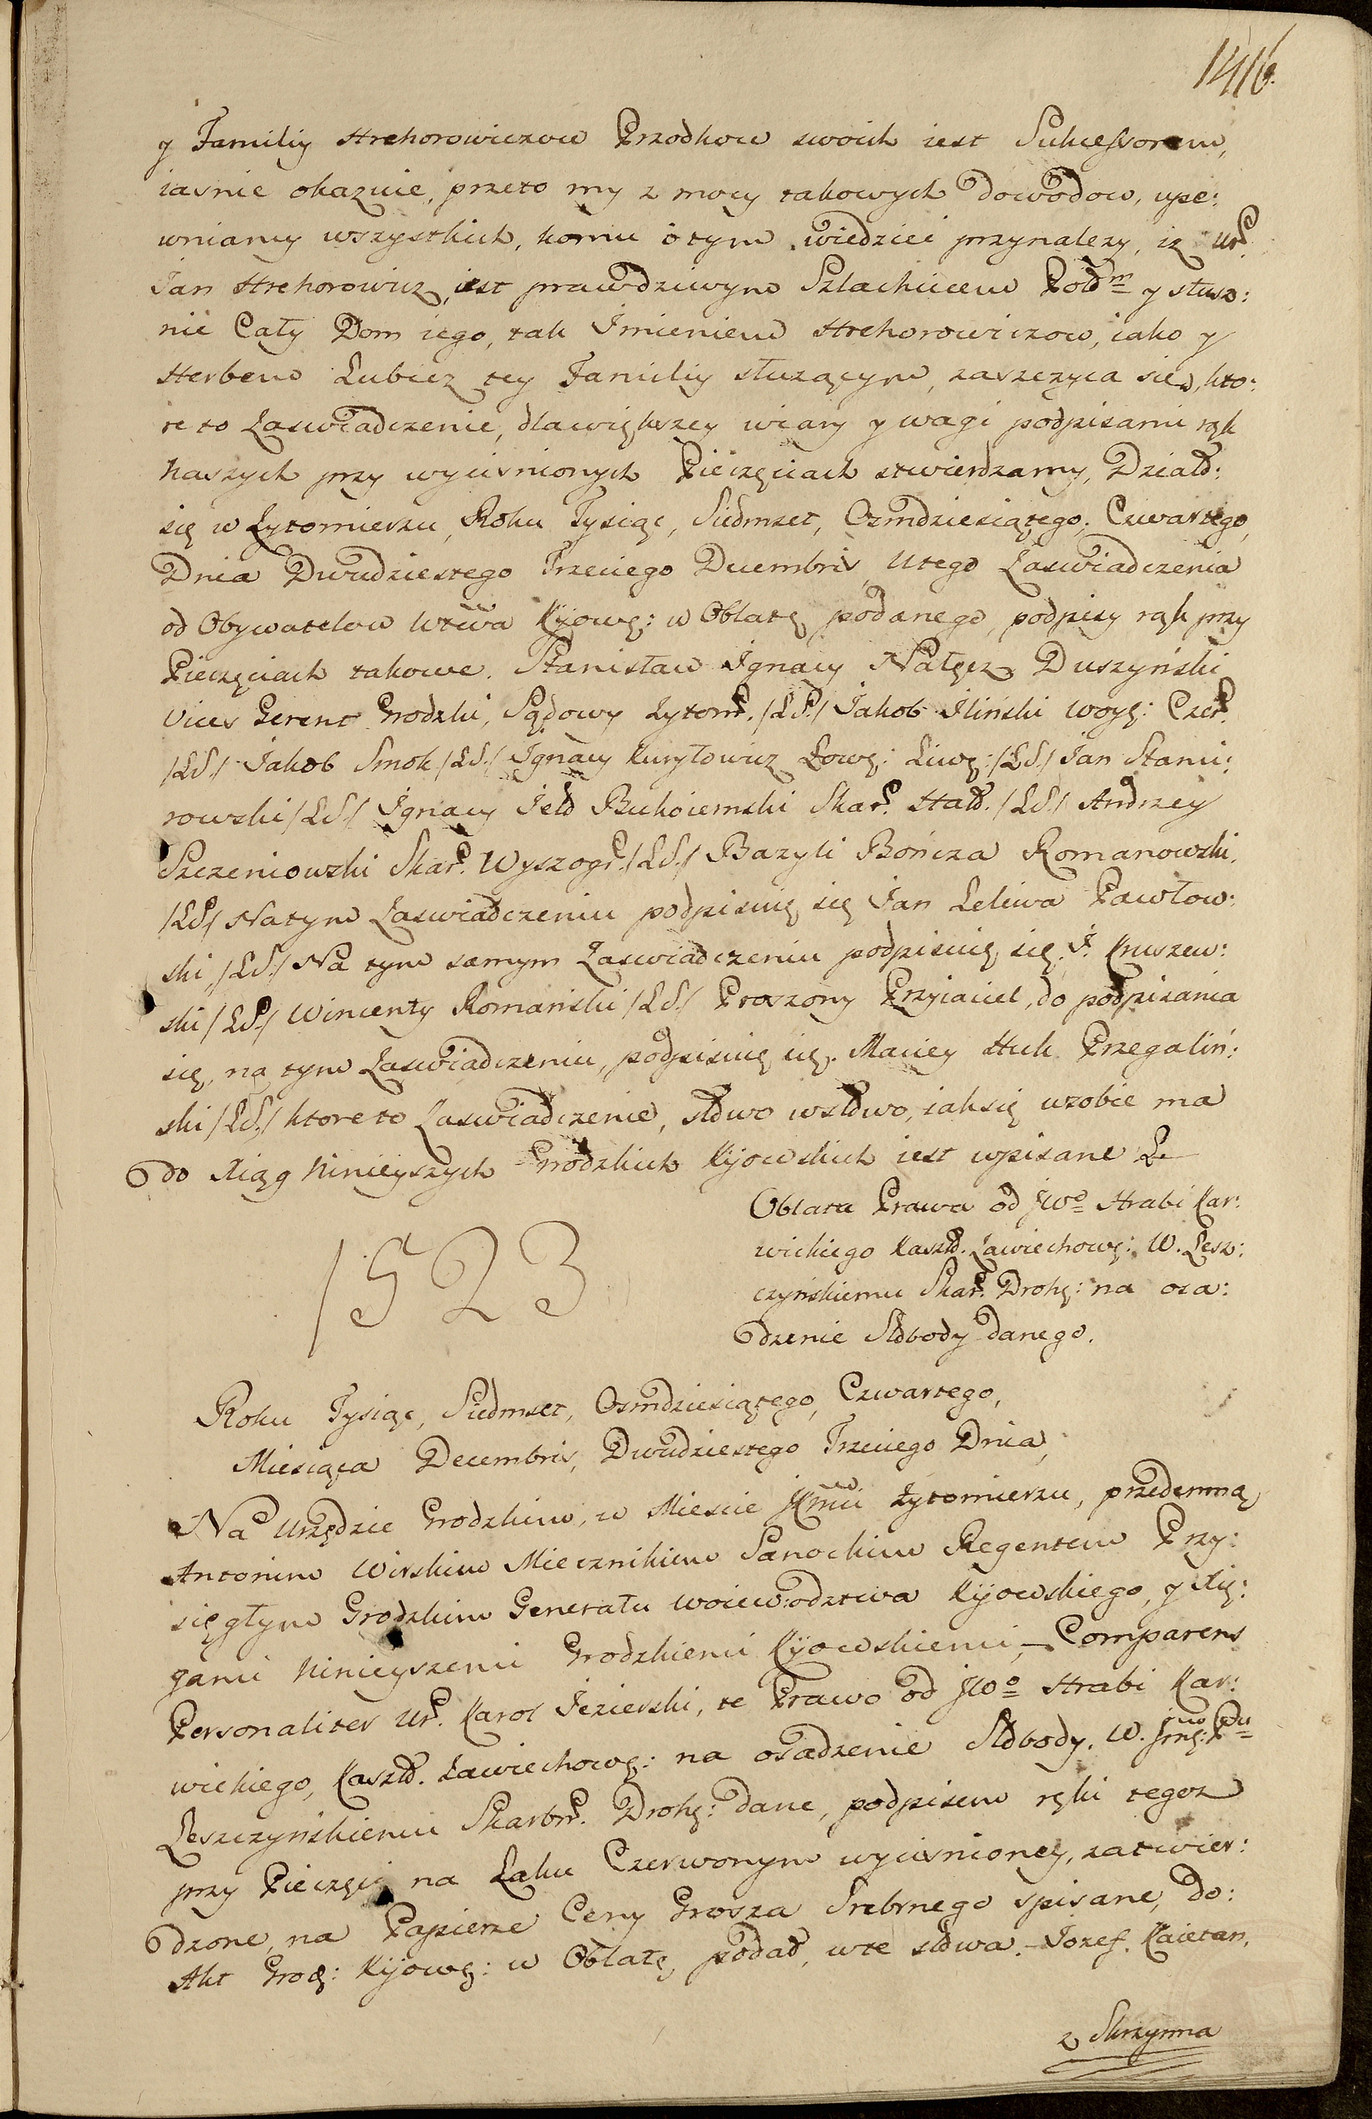 1416.
y Familiy Hrehorowiczow Przodkow swoich iest Sukcessorem,
iasnie okazuie, przeto my z mocy takowych dowodow, upe:
wniamy wszystkich, komu o tym wiedziec przynalezy, iz Ur.
Jan Hrehorowicz, iest prawdziwym Szlachcicem Polm y słusz:
nie Cały Dom iego, tak Imieniem Hrehorowiczow, iako y
Herbem Lubicz tey Familiy słuzącym, zaszczyca się, kto:
re to Zaswiadczenie, dla większey wiary y wagi podpisami rąk
Naszych przy wycisnionych Pieczęciach stwierdzamy, Działo:
się w Zytomierzu, Roku Tysiąc, Siedmset, Osmdziesiątego, Czwartego,
Dnia Dwudziestego Trzeciego Decembris, U tego Zaswiadczenia
od Obywatelow Wtwa Kijowg: w Oblatę podanego, podpisy rąk przy
Pieczęciach takowe. Stanisław Ignacy Nałęcz Duszyński
Vices Gerent Grodzki, Sądowy Zytom. /LS./ Jakob Iliński Woyg: Czer.
/LS./ Jakob Smok /LS./ Ignacy Kuryłowicz Łowg: Liwg: /LS/ Jan Stani:
rowski /LS./ Ignacy Jeło Bukoiemski Skar. Hal. /LS/ Andrzey
Szczeniowski Skar. Wyszogr. /LS./ Bazyli Bończa Romanowski.
/LS/ Na tym Zaswiadczeniu podpisuię się Jan Leliwa Pawłow:
ski, /LS./ Na tym samym Zaswiadczeniu podpisuię się. J. Kruszew:
ski /LS./ Wincenty Romański /LS/ Proszony Przyiaciel, do podpisania
się, na tym Zaswiadczeniu, podpisuię się. Maciey Huk Przegaliń:
ski /LS./ ktore to Zaswiadczenie, słowo w słowo, iak się w sobie ma
do Xiąg Ninieyszych Grodzkich Kijowskich iest wpisane
1523
Oblata Prawa od JWo Hrabi Kar:
wickiego Kasztl. Zawichowg: W. Lesz:
czyńskiemu Skar. Drohg: na osa:
dzenie Słobody danego.
Roku Tysiąc, Siedmset, Osmdziesiątego, Czwartego,
Miesiąca Decembris, Dwudziestego Trzeciego Dnia,
Na Urzędzie Grodzkim, w Miescie JKmci Zytomierzu, przedemną
Antonim Wirskim Miecznikiem Sanockim Regentem Przy:
sięgłym Grodzkim Generału Woiewodztwa Kijowskiego, y Xię:
gami Ninieyszemi Grodzkiemi Kijowskiemi, Comparens
Personaliter Ur. Karol Jezierski, te Prawo od JWo Hrabi Kar:
wickiego, Kasztl. Zawichowg: na osadzenie Słobody. W. Jmg: Pu
Leszczyńskiemu Skarbr. Drohg: dane, podpisem ręki tegoz
przy Pieczęci na Laku Czerwonym wycisnioney, zatwier:
dzone, na Papierze Ceny Grosza Srebrnego spisane, do:
Akt Grog: Kijowg: w Oblatę, podał, w te słowa. Jozef. Kaietan.
z Skrzynna